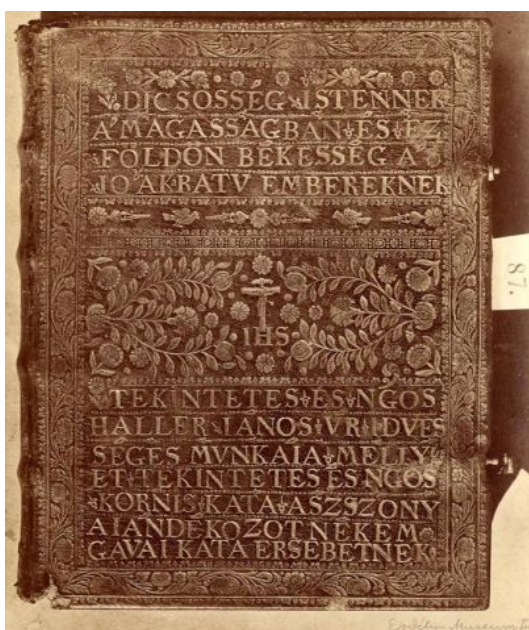 DICSÖSSÉG ISTENNEK
A' MAGASSAGBAN ÉS EZ
FÖLDÖN BÉKESSÉG A
IO AKRATV EMBEREKNEK
IHS
TEKINTETES ÉS NGOS
HALLER IANOS VR IDVES
SÉGES MVNKAIA MELLY
ET TEKINTETES ÉS NGOS
KORNIS KATA ASZSZONY
AIANDEKOZOT NEKEM
GAVAI KATA ERSEBETNEK
87.